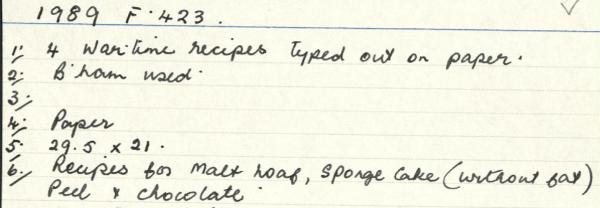 1989 F. 423.
1. 4 Wartime recipes typed out on paper.
2. B'ham used.
3.
4. Paper
5. 29.5 x 21.
6. Recipes for Malt Loaf, Sponge Cake (without fat)
Peel & chocolate